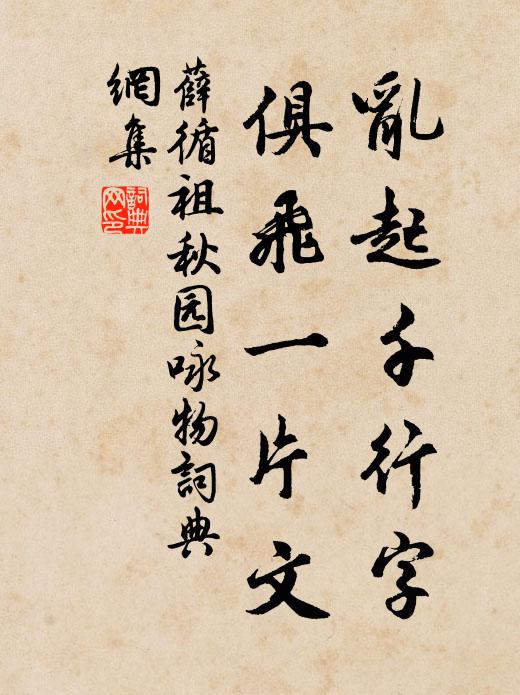 亂起千行字
俱飛一片文
薛循祖秋园咏物詞典
網集
詞典
网印